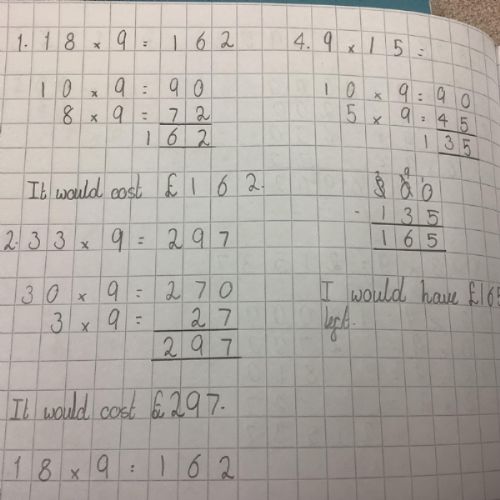 1. 18 × 9 = 162
10 × 9 = 90
8 × 9 = 72
162
It would cost £162.
2. 33 × 9 = 297
30 × 9 = 270
3 × 9 = 27
297
It would cost £297.
18 × 9 = 162
4. 9 × 15 =
10 × 9 = 90
5 × 9 = 45
135
300
- 135
165
I would have £165
left.